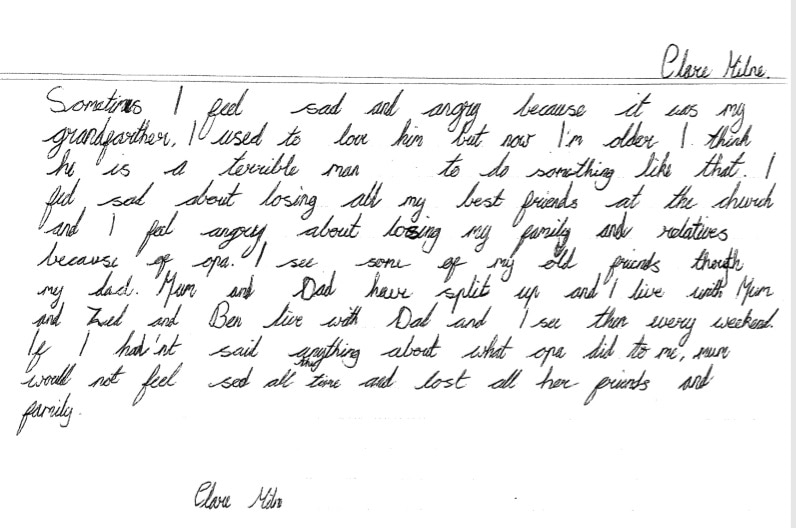 Clare Milne.
Sometimes I feel sad and angry because it was my
grandfarther, I used to love him but now I'm older I think
he is a terrible man to do something like that. I
feel sad about losing all my best friends at the church
and I feel angry about losing my family and relatives
because of opa. I see some of my old friends thouth
my dad. Mum and Dad have split up and I live with Mum
and Zed and Ben live with Dad and I see them every weekend.
If I had'nt said anything about what opa did to me, mum
would not feel sad all the time and lost all her friends and
family.
Clare Milne